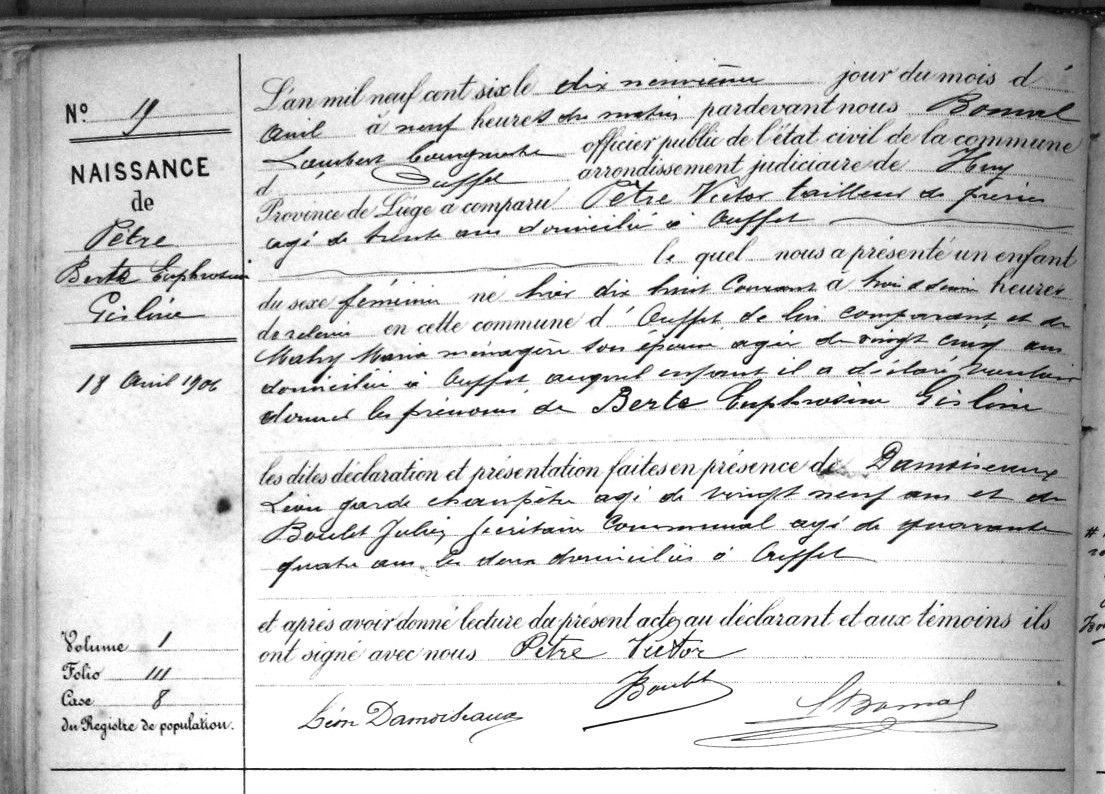 Nº 19
NAISSANCE
de
Pètre
Berte Euphrosine
Gisline
18 avril 1906
Volume 1
Folio 111
Case 8
du Registre de population.
L'an mil neuf cent six le dix neuvième jour du mois d'
avril à neuf heures du matin pardevant nous Bomal
Lambert bourgmestre officier public de l'état civil de la commune
d' Ouffet arrondissement judiciaire de Huy
Province de Liège a comparu Pètre Victor tailleur de pierres
agé de trente ans domicilié à Ouffet
le quel nous a présenté un enfant
du sexe féminin né hier dix huit courant à heures
de relevée en cette commune d' Ouffet de lui comparant et de
Matry Maria ménagère son épouse agée de vingt cinq ans
domiciliée à Ouffet auquel enfant il a déclaré vouloir
donner les prénoms de Berte Euphrosine Gisline
les dites déclaration et présentation faites en présence de Damoiseaux
Léon garde champêtre agé de vingt neuf ans et de
Boulet Julien secrétaire communal agé de quarante
quatre ans les deux domiciliés à Ouffet
et après avoir donné lecture du présent acte au déclarant et aux témoins ils
ont signé avec nous Pètre Victor
Boulet
Léon Damoiseaux
L Bomal